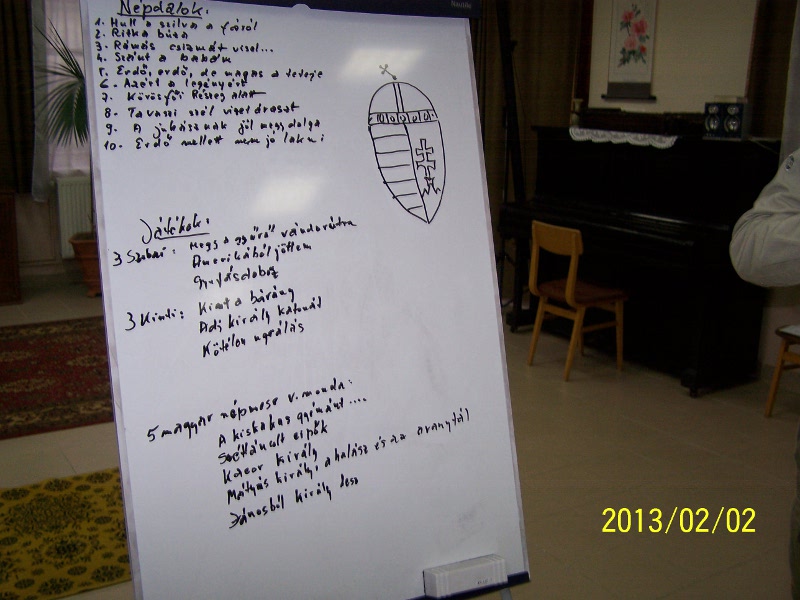 Nautilo
Népdalok:
1. Hull a szilva a fáról
2. Ritka búza
3. Rámás csizmát visel...
4. Szánt a babám
5. Erdő, erdő, de magas a teteje
6. Azért a legényért
7. Körösfői Részeg alatt
8. Tavaszi szél vizet áraszt
9. A juhásznak jól megy dolga
10. Erdő mellett nem jó lakni
Játékok:
3 Szobai: Megy a gyűrű vándorútra
Amerikából jöttem
Gyufásdoboz
3 Kinti: Kint a bárány
Adj király katonát
Kötélen ugrálás
5 magyar népmese v. monda:
A kiskakas gyémánt....
Széttáncolt cipők
Kacor király
Mátyás király, a halász és az aranytál
Jánosból király lesz
2013/02/02